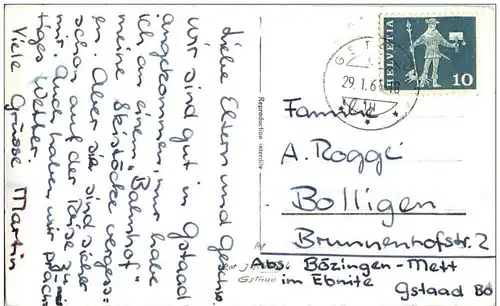 Liebe Eltern und Geschw.
wir sind gut in Gstaad
angekommen, nur habe
ich an einem "Bahnhof"
meine Skistöcke vergess=
en. Aber sie sind sicher
schon auf der Reise zu
mir. Auch haben wir präch=
tiges Wetter.
Viele Grüsse Martin
Reproduction interdite
HELVETIA
10
29.1.6
Familie
A. Roggli
Bolligen
Brunnenhofstr. 2
Abs. Bözingen-Mett
im Ebnite
Gstaad BO
Gstaad